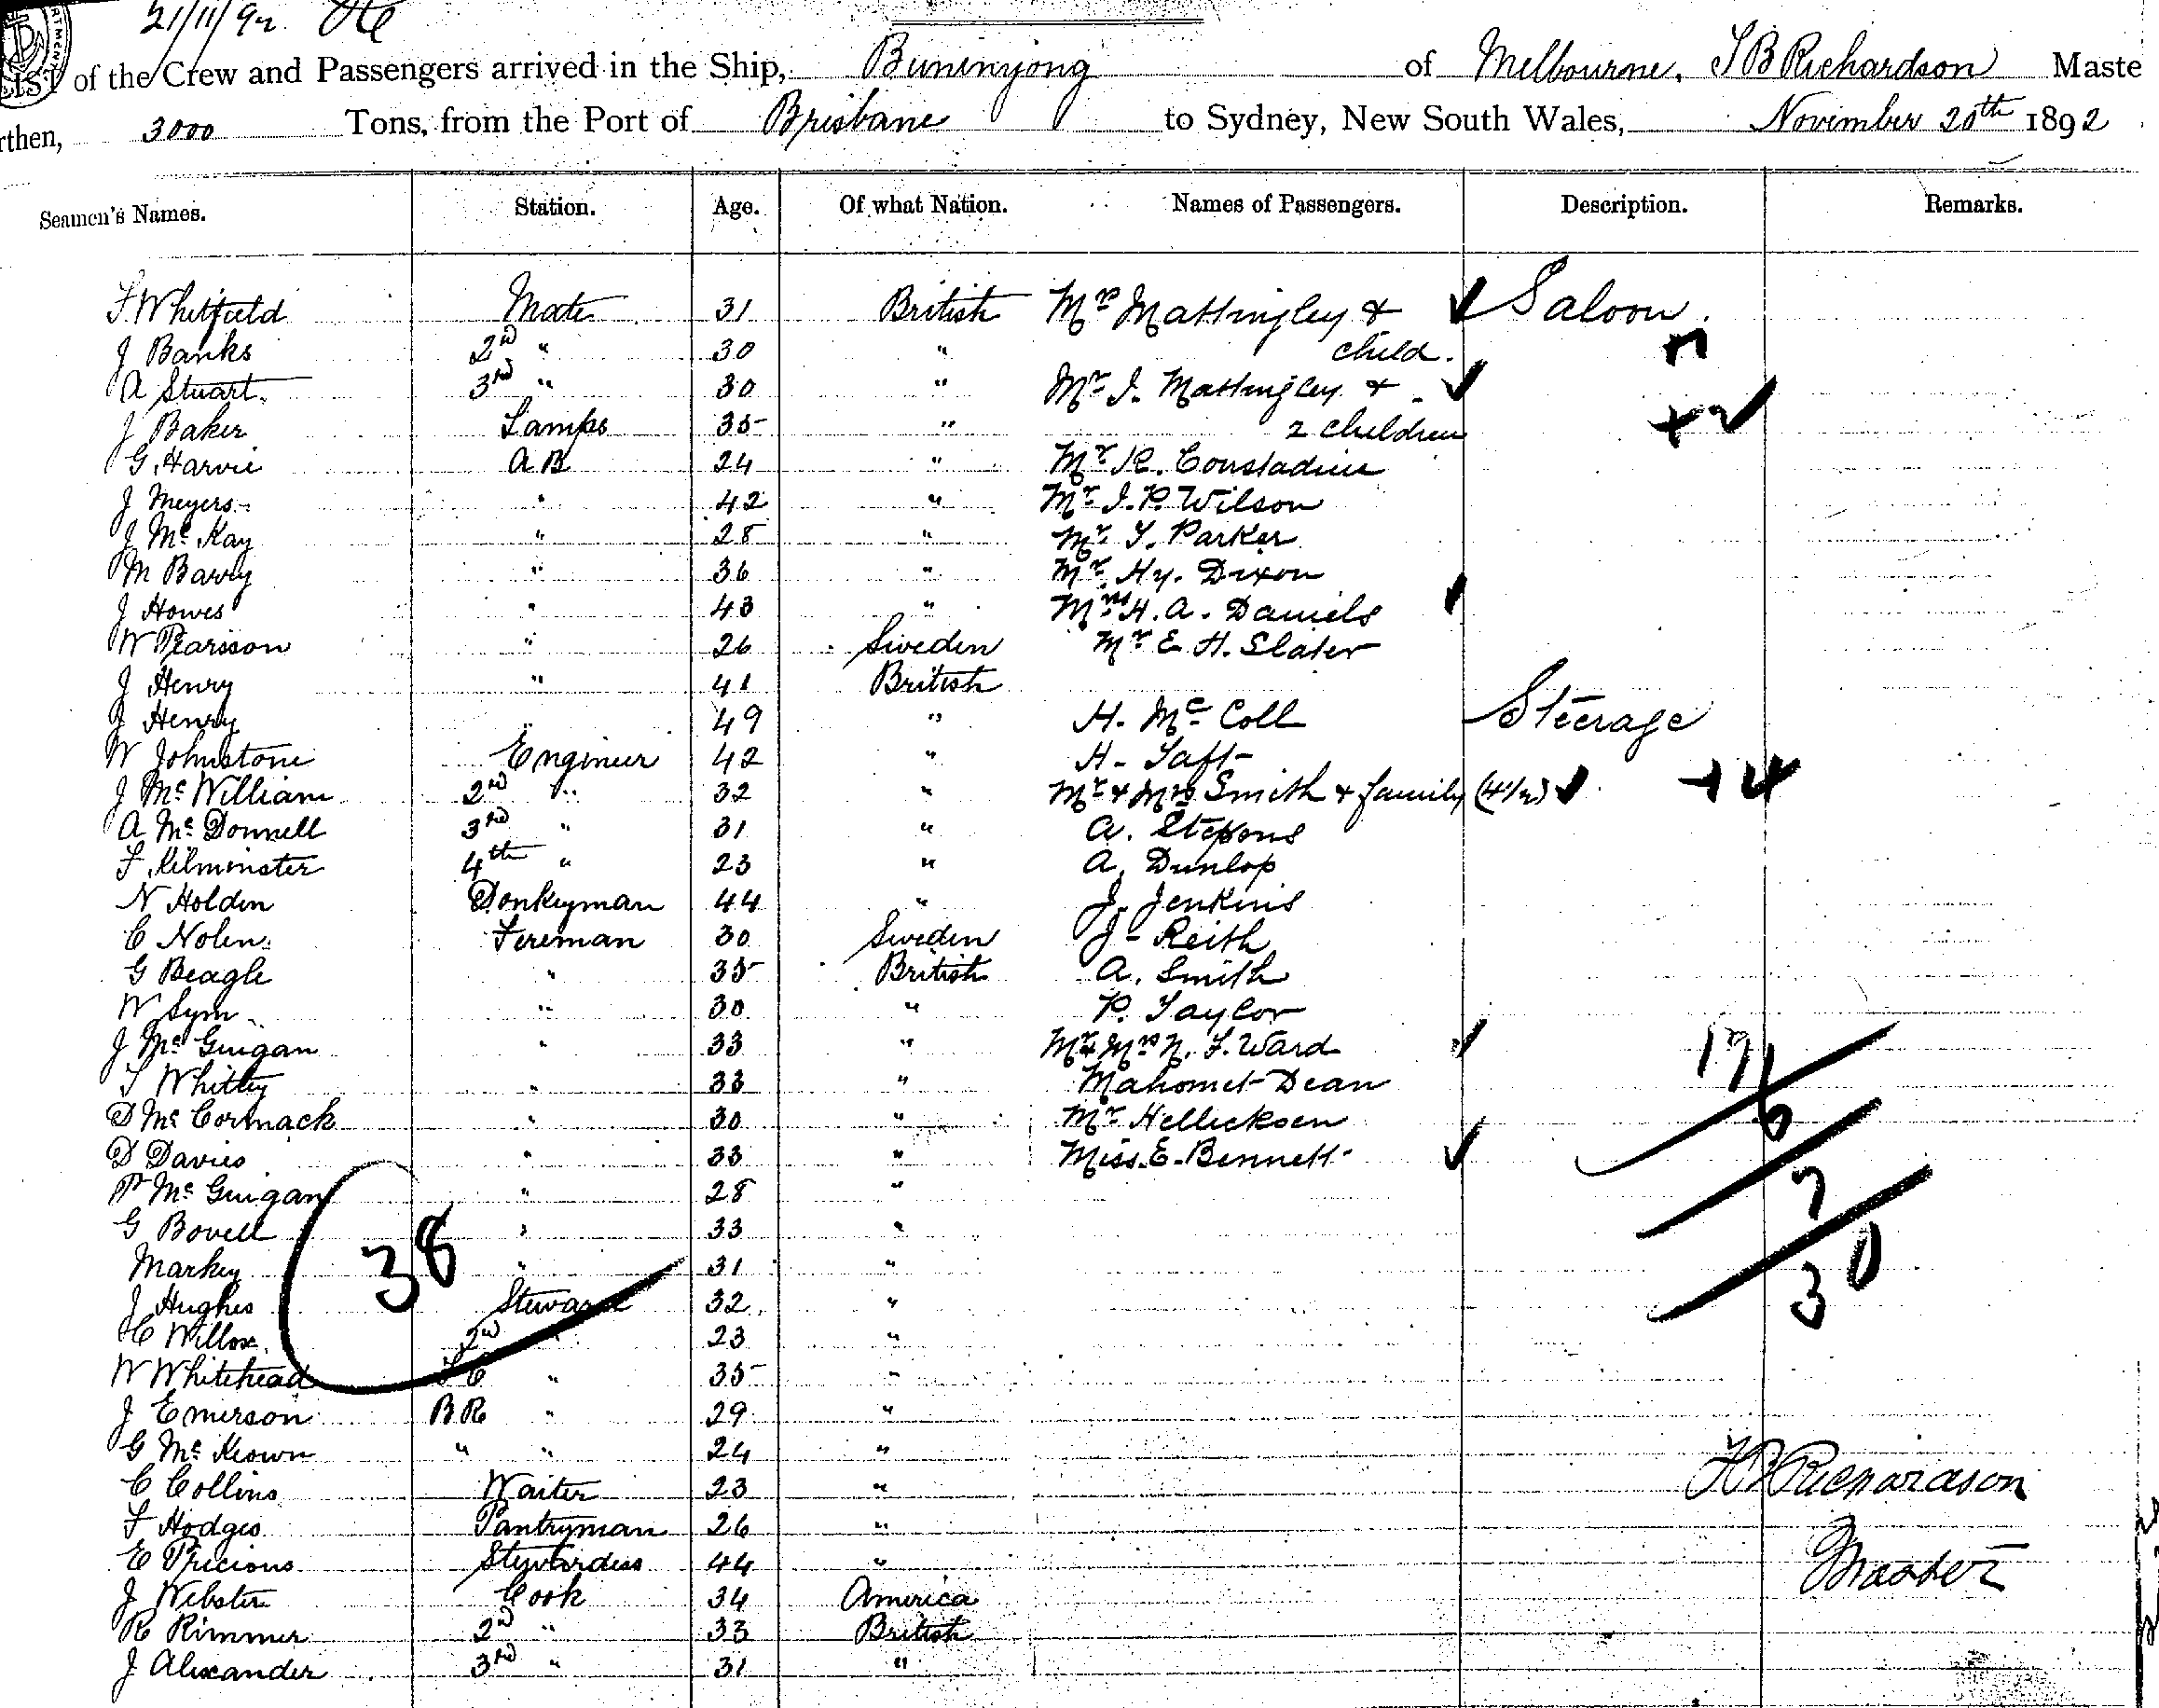 21/11/92.
LIST of the Crew and Passengers arrived in the Ship, Buninyong of Melbourne, T B Richardson Maste
rthen, 3000 Tons, from the Port of Brisbane to Sydney, New South Wales, November 20th 1892
Seamen's Names. Station. Age. Of what Nation. Names of Passengers. Description. Remarks.
F Whitfield Mate 31 British Mrs Mattingley & Saloon.
J Banks 2nd " 30 " child.
A Stuart 3rd " 30 " Mr J. Mattingley &
J Baker Lamps 35 " 2 children
G Harvie A B 24 " Mr R. Constadine
J Meyers " 42 " Mr J. P. Wilson
J McKay " 28 " Mr T. Parker
M Barry " 36 " Mr Hy. Dixon
J Howes " 43 " Mrs H. A. Daniels
W Pearsson " 26 Sweden Mr E H. Slater
J Henry " 41 British
J Henry " 49 " H. McColl Steerage
W Johnstone Engineer 42 " H. Taft
J McWilliam 2nd " 32 " Mr & Mrs Smith & family (4½) + 4
A McDonnell 3rd " 31 " A. Stepens
F Kilminster 4th " 23 " A. Dunlop
N Holden Donkeyman 44 " J. Jenkins
C Nolen Fireman 30 Sweden J. Reith
G Beagle " 35 British A. Smith
W Sym " 30 " P. Taylor
J McGuigan " 33 " Mr & Mrs N. F. Ward 17
T Whitty " 33 " Mahomet Dean
D McCormack " 30 " Mr Hellicksen 6
D Davies " 33 " Miss E. Bennett
P McGuigan " 28 " 7
G Bovell " 33 "
38
Markey " 31 " 30
J Hughes Steward 32 "
C Willox 2nd " 23 "
W Whitehead " 35 "
J Emerson B R " 29 "
G McKeown " " 24 "
C Collins Waiter 23 " T B Richardson
F Hodges Pantryman 26 "
E Precious Stewardess 44 " Master
J Webster Cook 34 America
R Rimmer 2nd " 33 British
J Alexander 3rd " 31 "